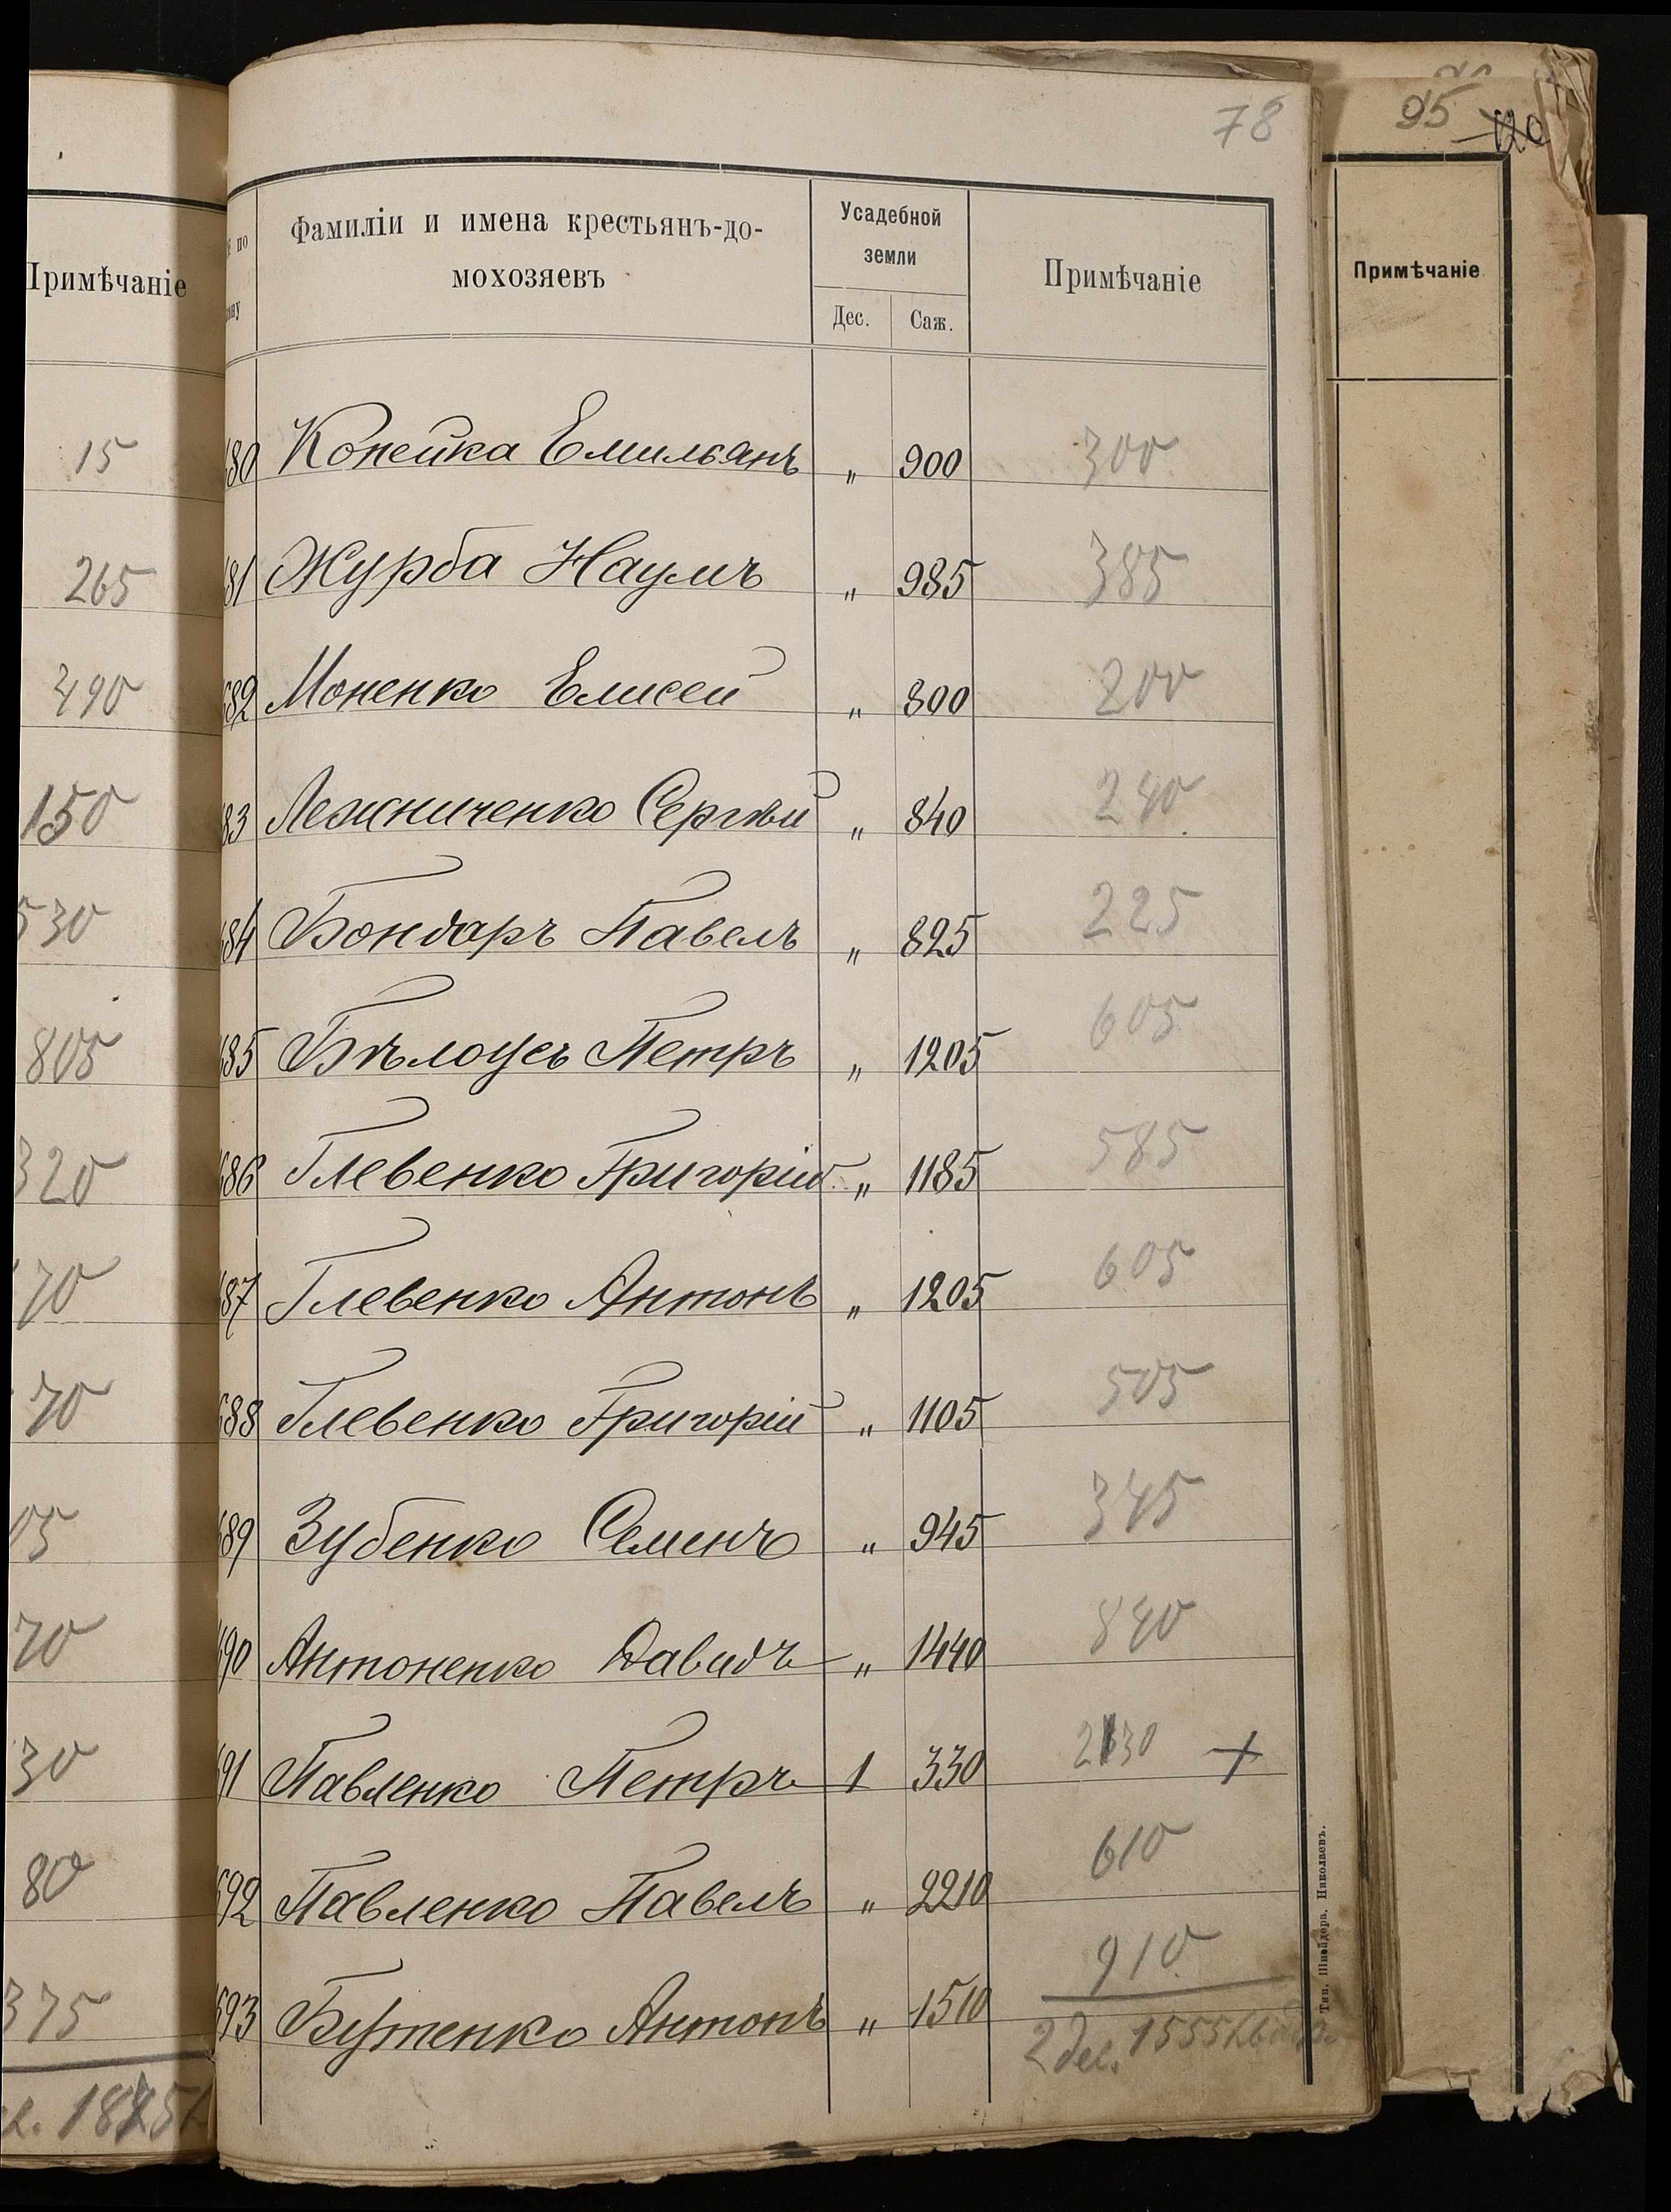 Примѣчаніе
15
265
490
150
530
805
320
70
70
05
70
30
80
375
78
№ по
Фамиліи и имена крестьянъ-до-
мохозяевъ
Усадебной
земли
Дес.
Саж.
Примѣчаніе
680 Копейка Емильянъ „ 900 300
681 Журба Наумъ „ 985 385
682 Моненко Елисей „ 800 200
683 Лежниченко Сергѣй „ 840 240
684 Бондаръ Павелъ „ 825 225
685 Бѣлоусъ Петръ „ 1205 605
686 Глевенко Григорій „ 1185 585
687 Глевенко Антонъ „ 1205 605
688 Глевенко Григорій „ 1105 505
689 Зубенко Семенъ „ 945 345
690 Антоненко Давидъ „ 1440 840
691 Павленко Петръ 1 330 2130 +
692 Павленко Павелъ „ 2210 610
693 Бутенко Антонъ „ 1510 910
2 дес. 1555
Тип. Шнейдера, Николаевъ.
95
120
Примѣчаніе